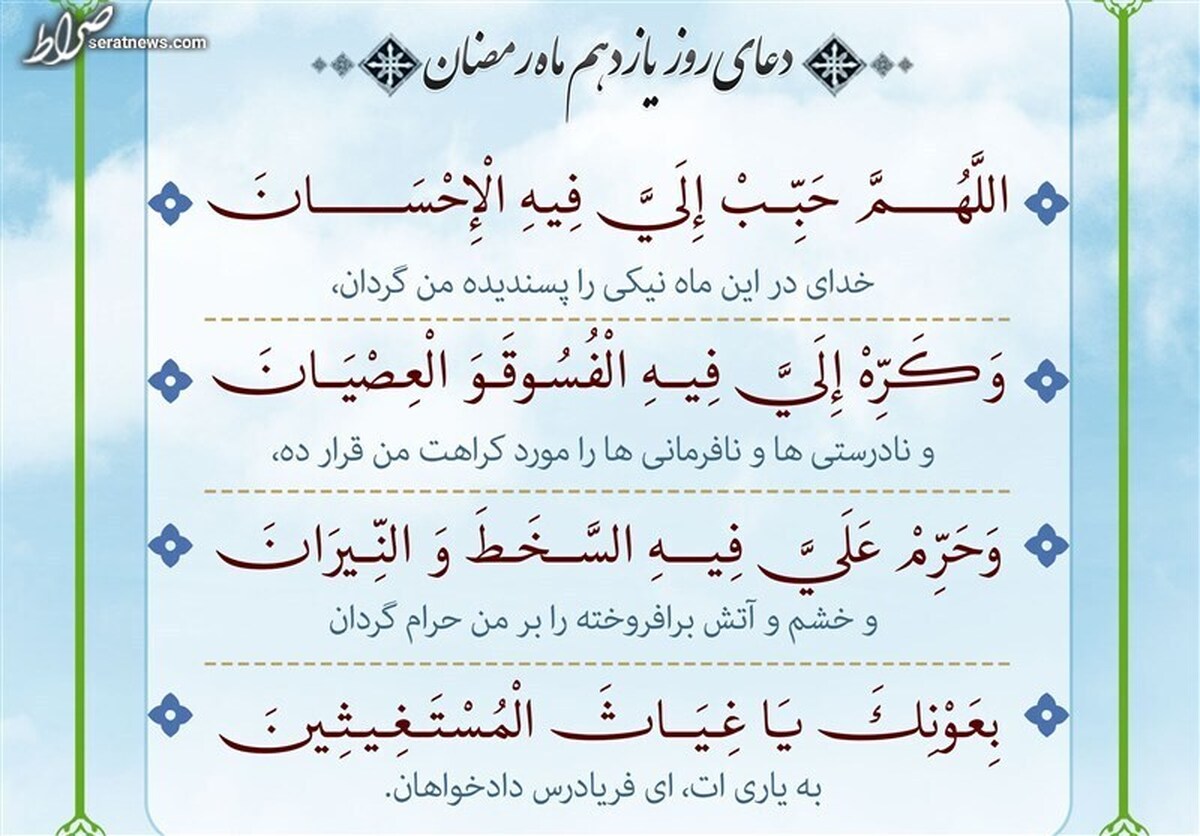 صراط
seratnews.com
دعای روز یازدهم ماه رمضان
اللَّهُمَّ حَبِّبْ إِلَيَّ فِيهِ الْإِحْسَانَ
خدای در این ماه نیکی را پسندیده من گردان،
وَ كَرِّهْ إِلَيَّ فِيهِ الْفُسُوقَوَ الْعِصْيَانَ
و نادرستی ها و نافرمانی ها را مورد کراهت من قرار ده،
وَ حَرِّمْ عَلَيَّ فِيهِ السَّخَطَ وَ النِّيرَانَ
و خشم و آتش برافروخته را بر من حرام گردان
بِعَوْنِكَ يَا غِيَاثَ الْمُسْتَغِيثِينَ
به یاری ات، ای فریادرس دادخواهان.